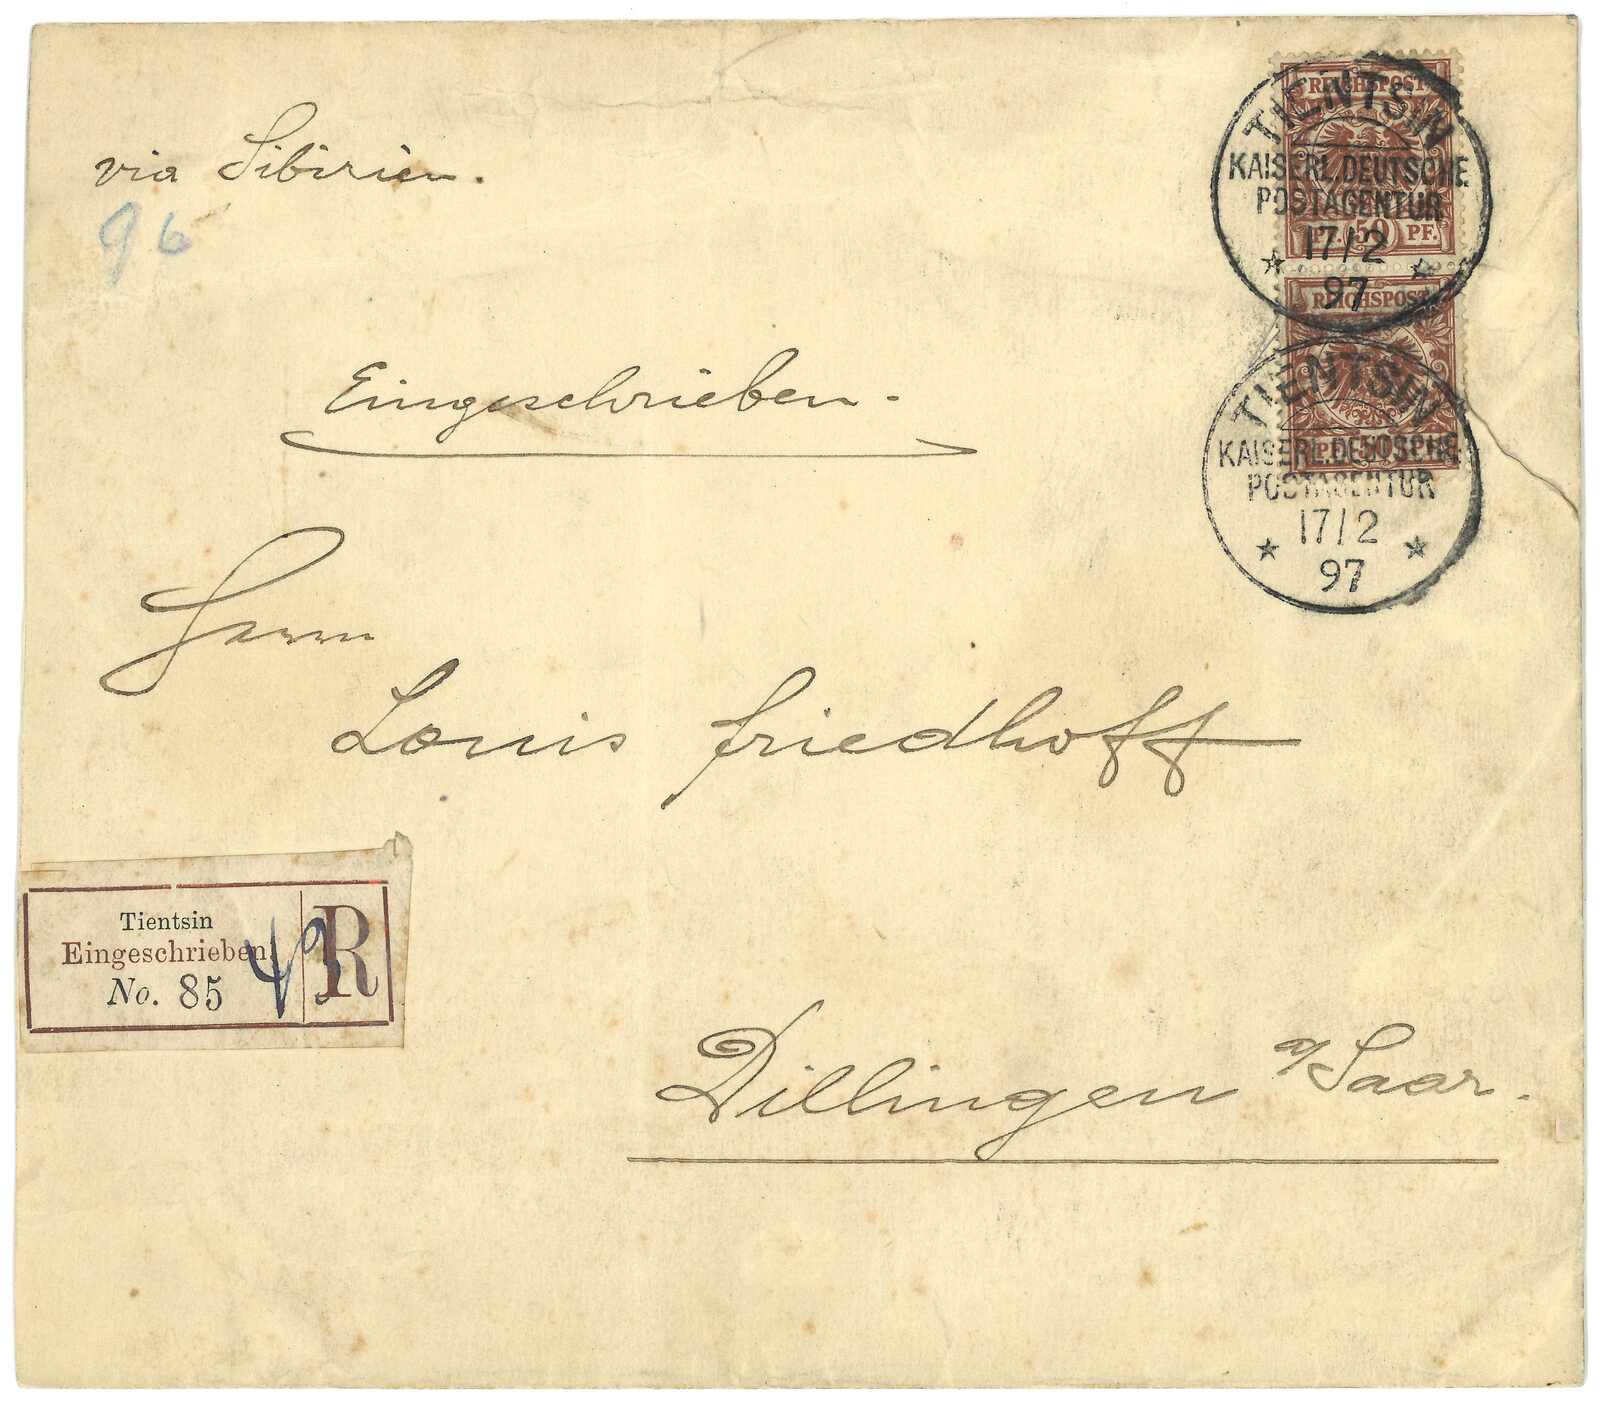 via Sibirien.
96
Eingeschrieben.
REICHSPOST
PF. 50 PF.
TIENTSIN
KAISERL. DEUTSCHE
POSTAGENTUR
17/2
97
REICHSPOST
TIENTSIN
KAISERL. DEUTSCHE
POSTAGENTUR
17/2
97
Herrn
Louis Friedhoff
Tientsin
Eingeschrieben.
No. 85
R
Dillingen a/Saar.